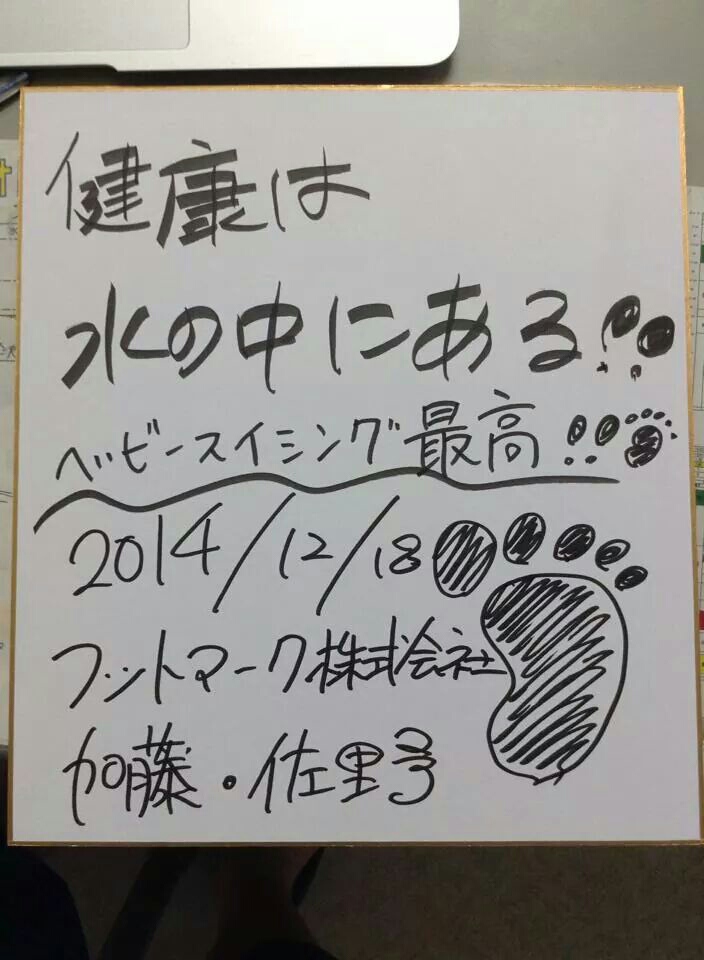 健康は
水の中にある!!
ベビースイミング最高!!
2014/12/18
フットマーク株式会社
加藤・佐野